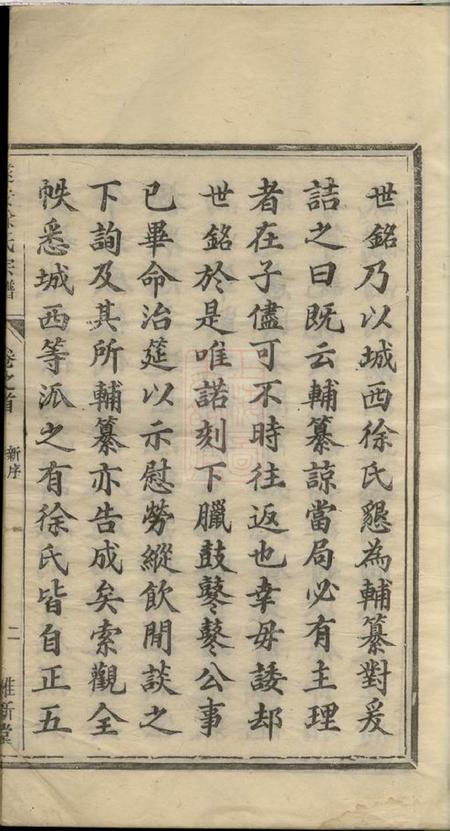 世銘乃以城西徐氏懇為輔纂對爰
詰之曰既云輔纂諒當局必有主理
者在子儘可不時往返也幸毋諉却
世銘於是唯諾刻下臘鼓鼕鼕公事
已畢命治筵以示慰勞縱飲閒談之
下詢及其所輔纂亦告成矣索觀全
帙悉城西等派之有徐氏皆自正五
氏宗譜
卷之首
新序
二
惟新堂